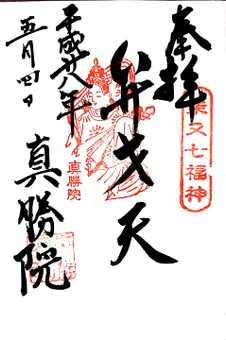 奉拝
秩父七福神
弁才天
真勝院
平成廿八年
五月四日
真勝院